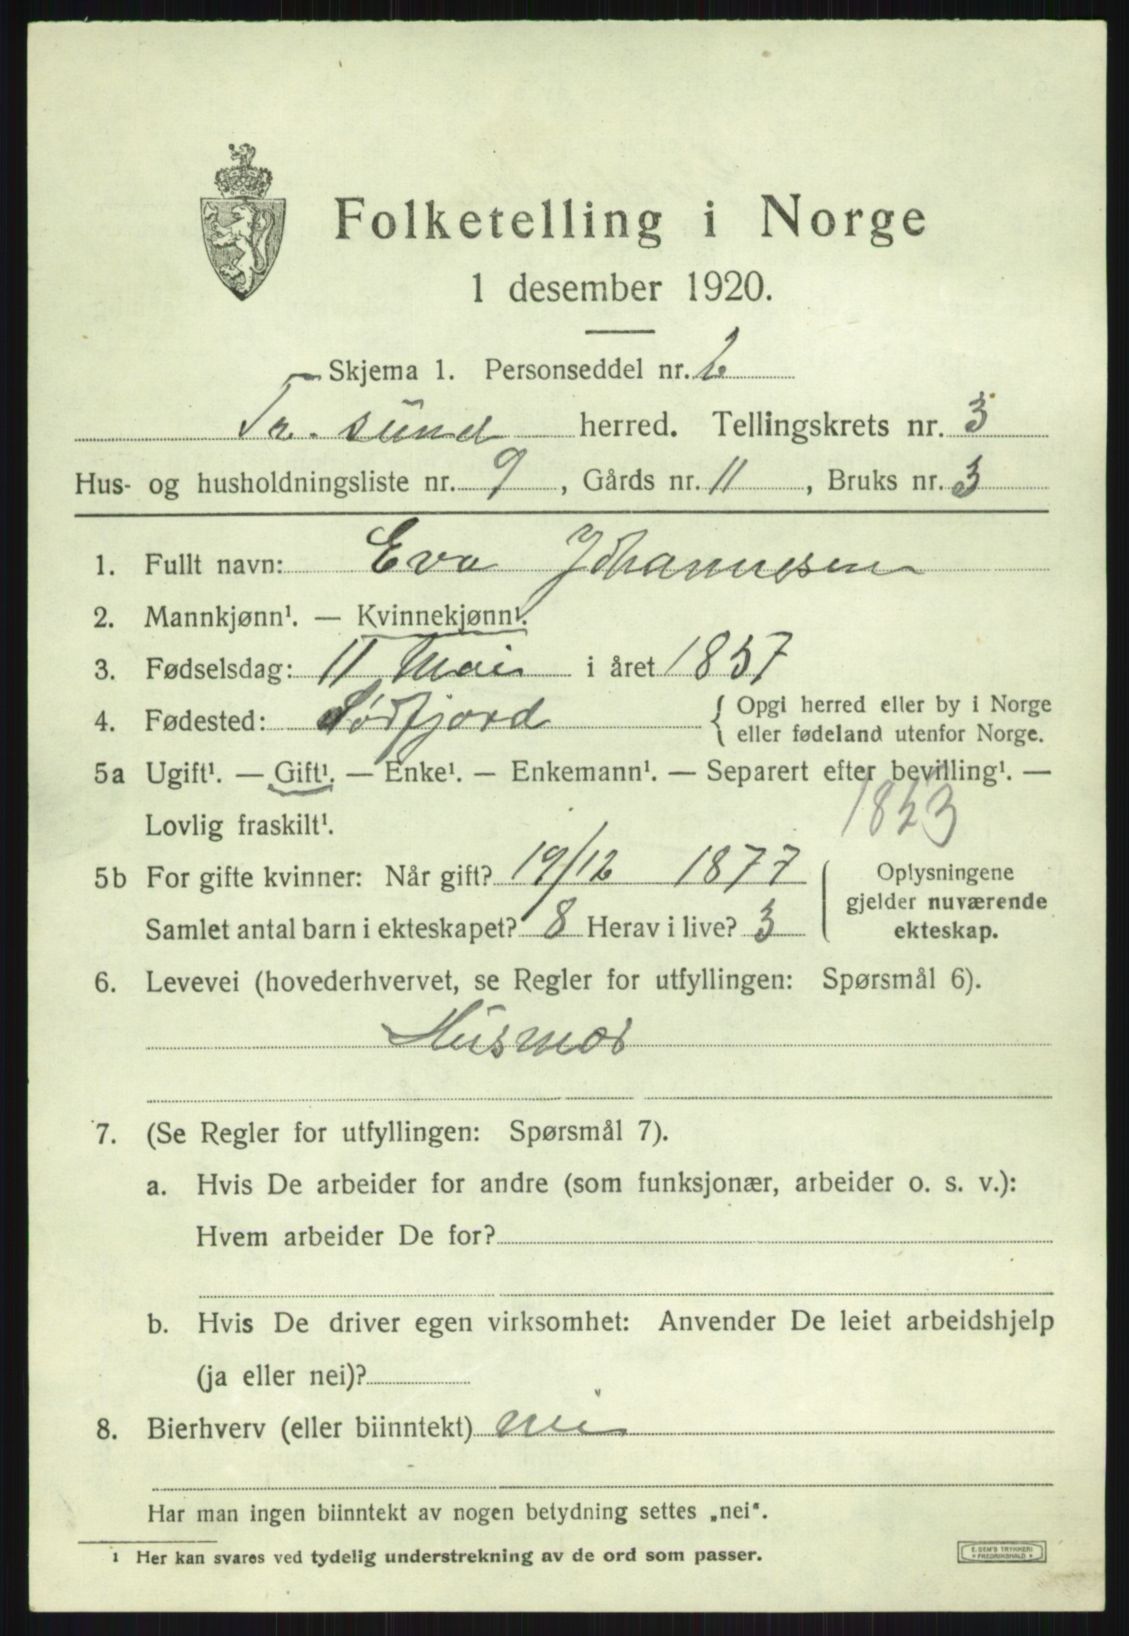 Folketelling i Norge
1 desember 1920.
Skjema 1. Personseddel nr. 2
Tr. sund herred. Tellingskrets nr. 3
Hus- og husholdningsliste nr. 9, Gårds nr. 11, Bruks nr. 3
1. Fullt navn: Eva Johannesen
2. Mannkjønn¹. — Kvinnekjønn¹.
3. Fødselsdag: 11 Mai i året 1857
4. Fødested: Sørfjord { Opgi herred eller by i Norge
eller fødeland utenfor Norge.
5a Ugift¹. — Gift¹. — Enke¹. — Enkemann¹. — Separert efter bevilling¹. —
Lovlig fraskilt¹.
1853
5b For gifte kvinner: Når gift? 19/12 1877
Samlet antal barn i ekteskapet? 8 Herav i live? 3
Oplysningene
gjelder nuværende
ekteskap.
6. Levevei (hovederhvervet, se Regler for utfyllingen: Spørsmål 6).
Husmor
7. (Se Regler for utfyllingen: Spørsmål 7).
a. Hvis De arbeider for andre (som funksjonær, arbeider o. s. v.):
Hvem arbeider De for?
b. Hvis De driver egen virksomhet: Anvender De leiet arbeidshjelp
(ja eller nei)?
8. Bierhverv (eller biinntekt) nei
Har man ingen biinntekt av nogen betydning settes „nei".
¹ Her kan svares ved tydelig understrekning av de ord som passer.
E. SEM'S TRYKKERI
FREDRIKSHALD